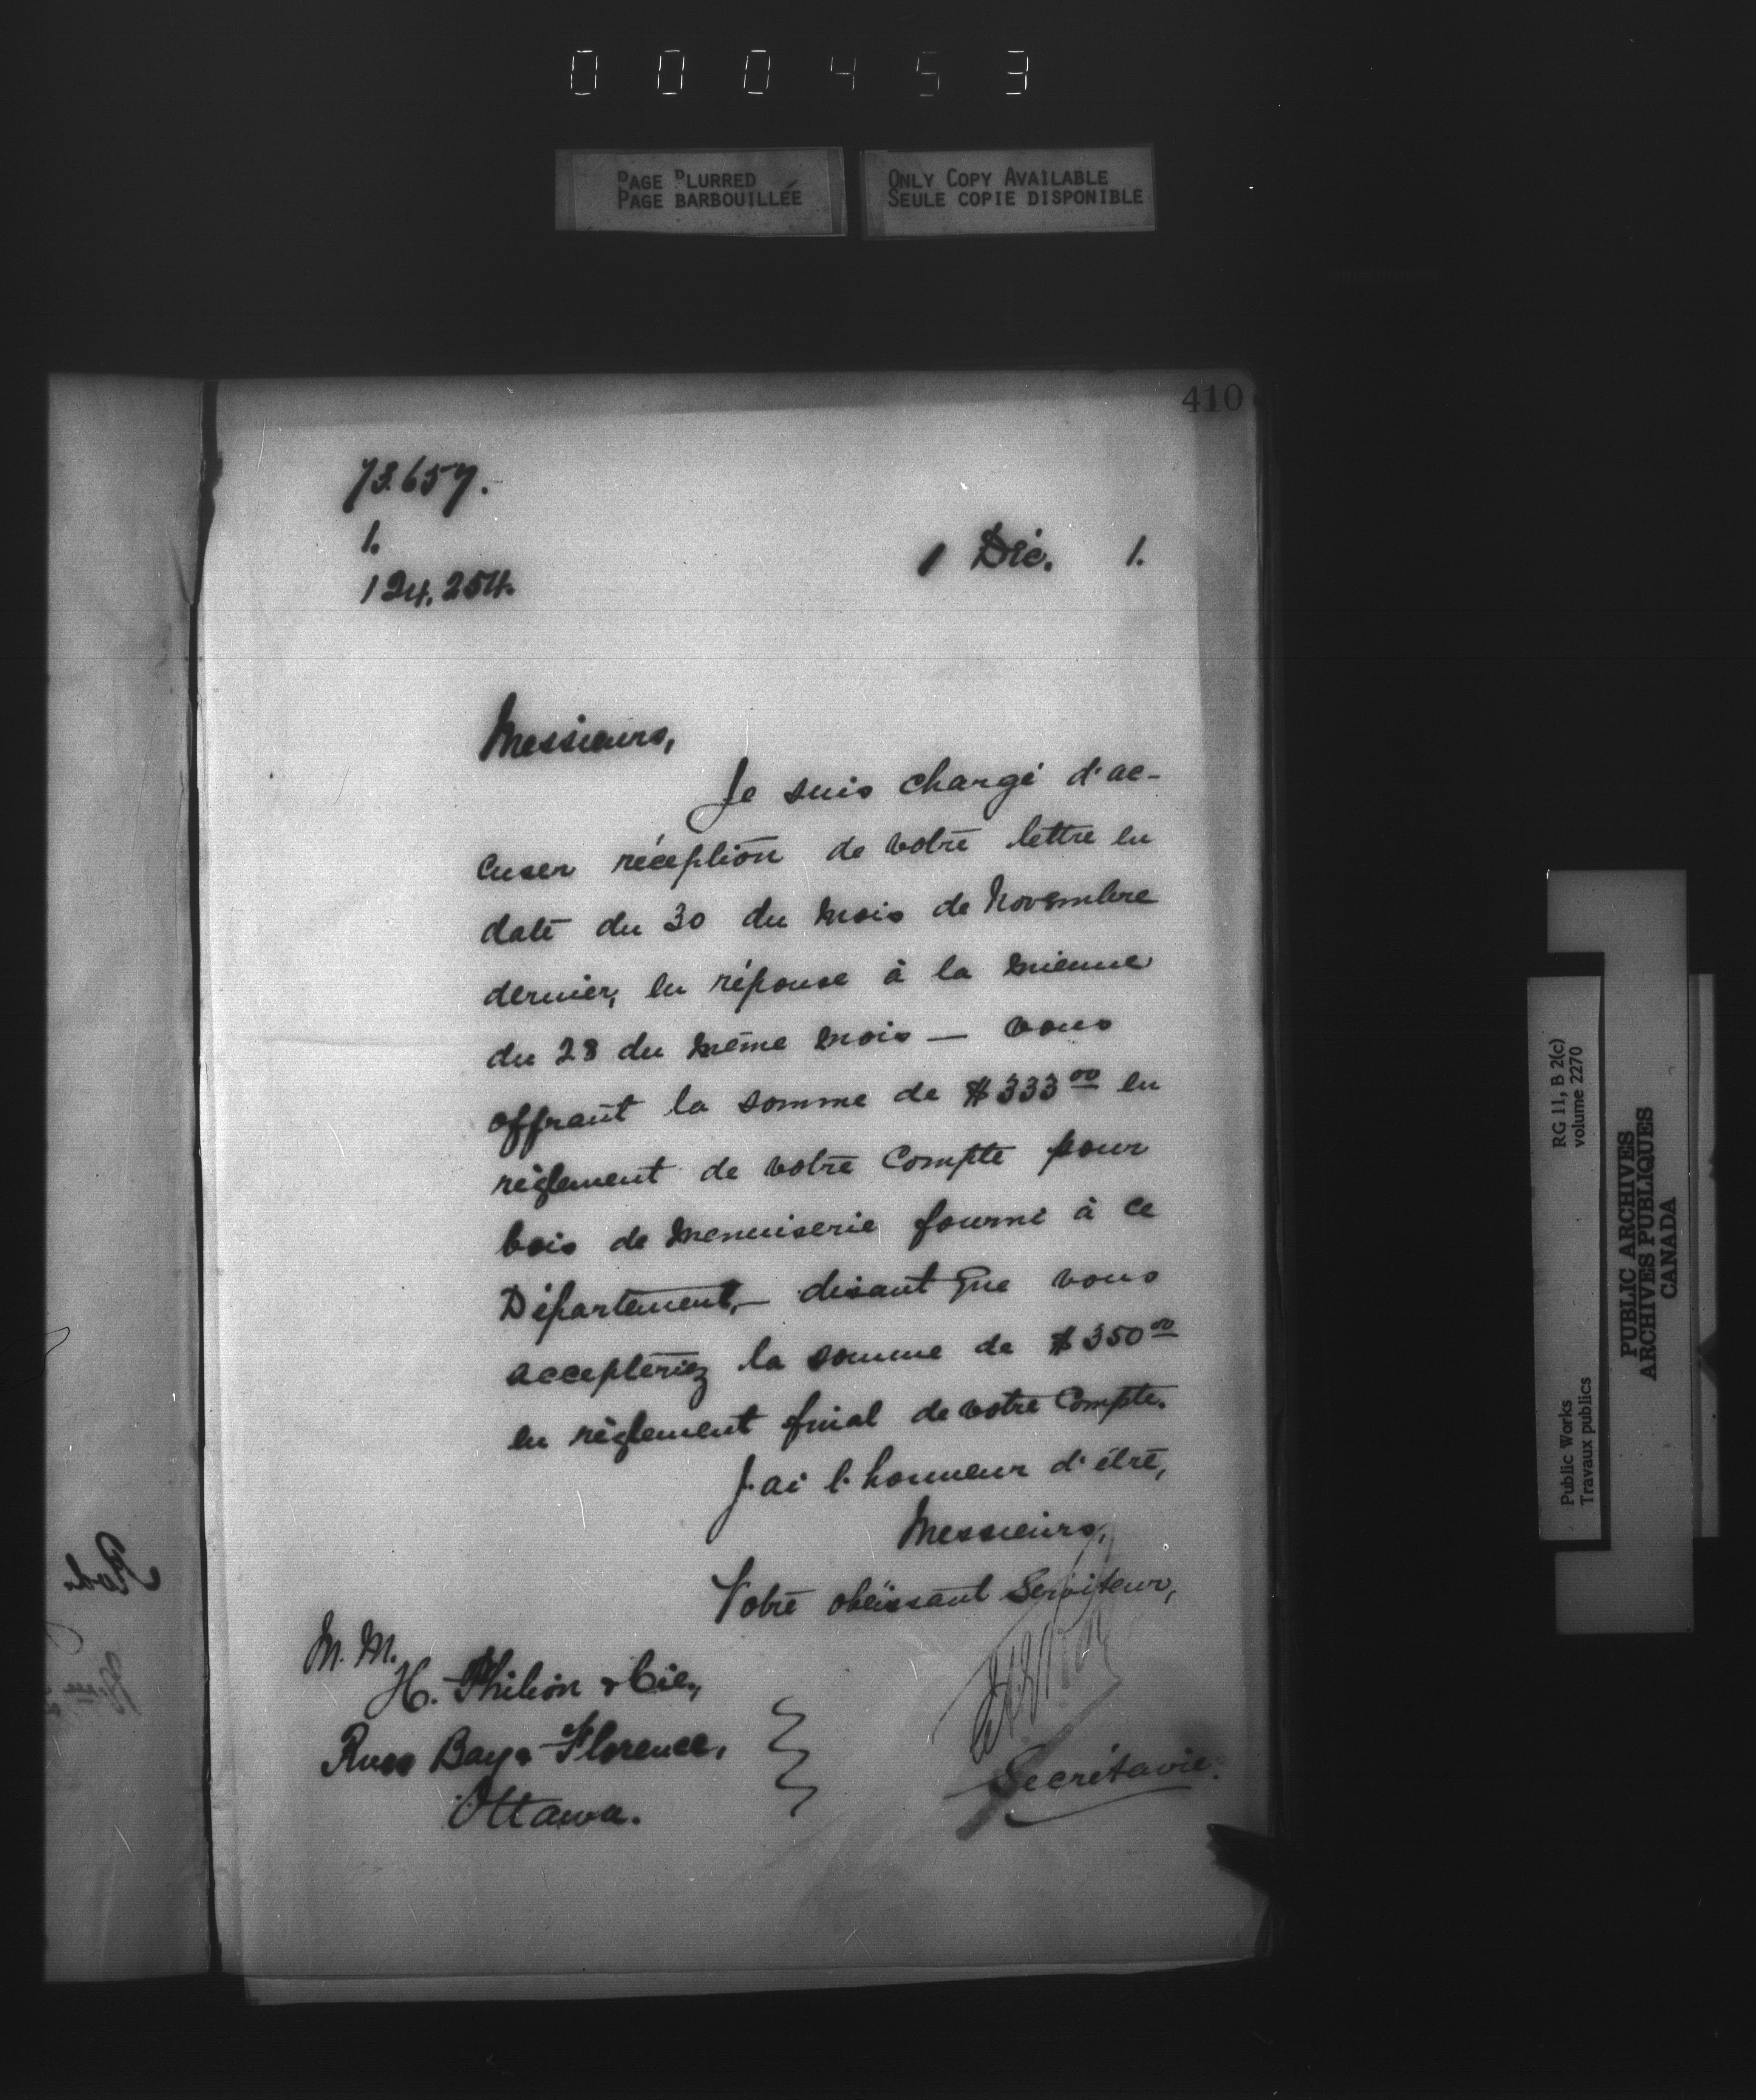 000453
PAGE BLURRED
PAGE BARBOUILLÉE
ONLY COPY AVAILABLE
SEULE COPIE DISPONIBLE
410
73.657.
1.
124.254.
1 Déc. 1.
Messieurs,
Je suis chargé d'ac-
cuser réception de votre lettre en
date du 30 du mois de Novembre
dernier, en réponse à la mienne
du 28 du même mois — vous
offrant la somme de $333 00 en
règlement de votre compte pour
bois de menuiserie fourni à ce
Département, — disant que vous
accepteriez la somme de $350 00
en règlement final de votre compte.
J'ai l'honneur d'être,
Messieurs,
Votre obéissant Serviteur,
Secrétaire.
M. M.
H. Philion & Cie.,
Rues Bay & Florence,
Ottawa.
RG 11, B 2(c)
volume 2270
Public Works
Travaux publics
PUBLIC ARCHIVES
ARCHIVES PUBLIQUES
CANADA